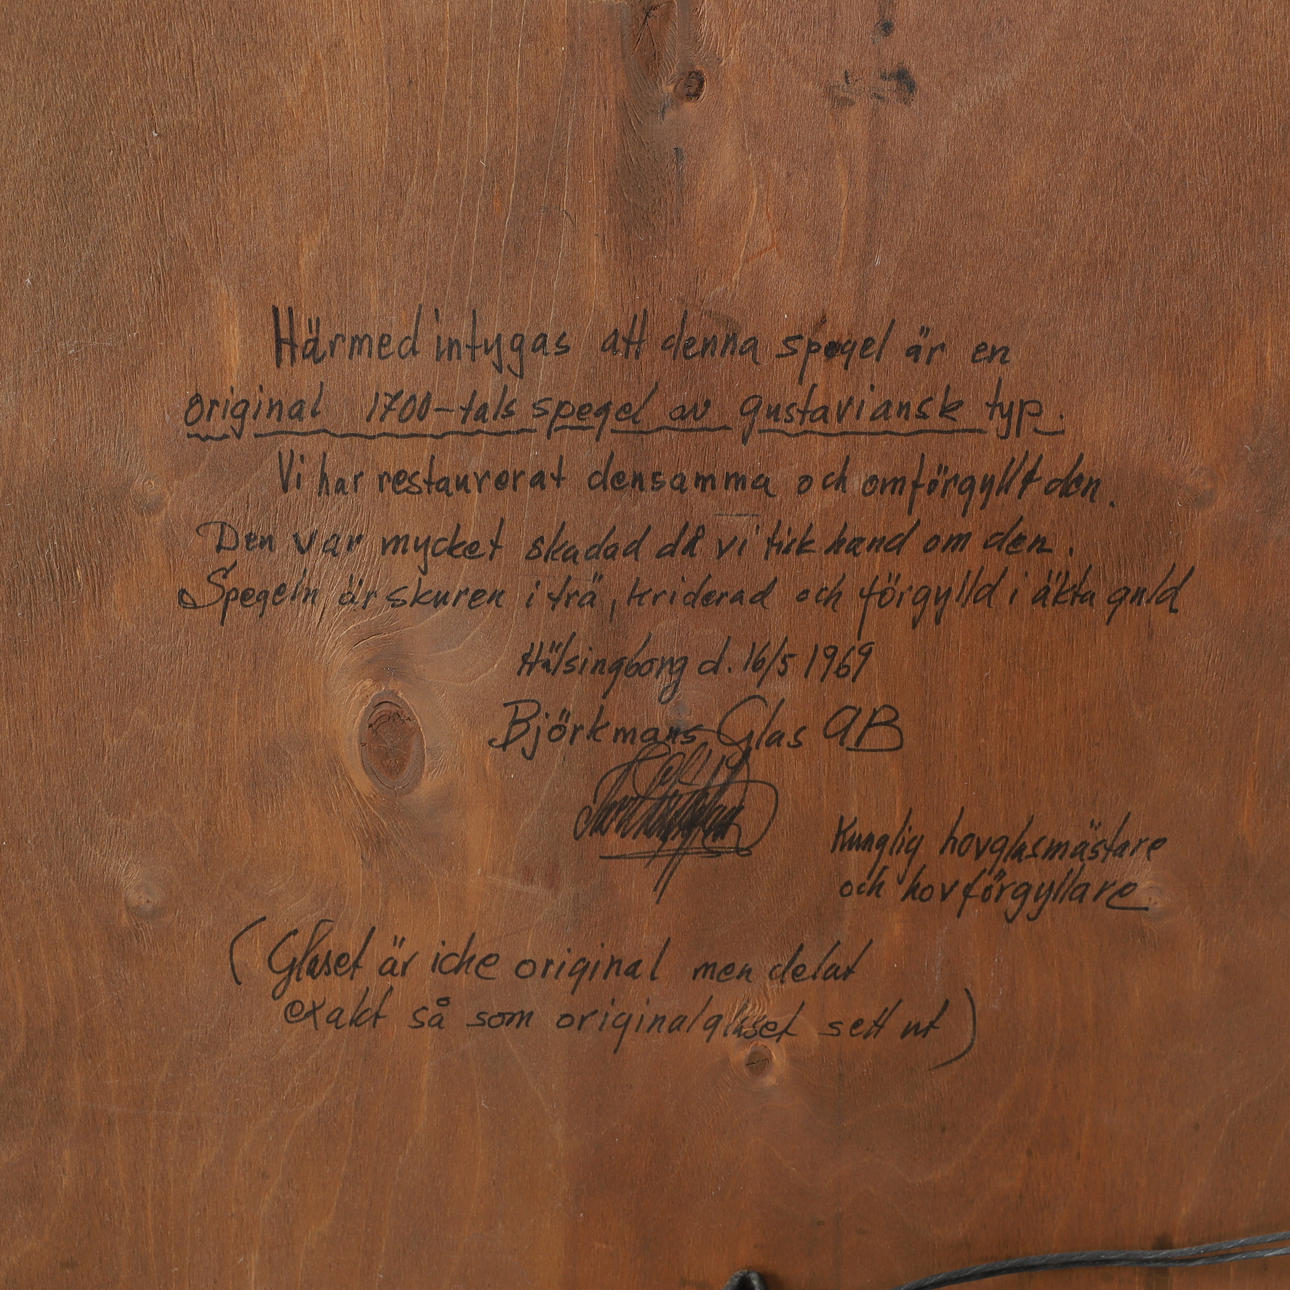 Härmed intygas att denna spegel är en
original 1700-tals spegel av gustaviansk typ.
Vi har restaurerat densamma och omförgyllt den.
Den var mycket skadad då vi fick hand om den.
Spegeln är skuren i trä, kriderad och förgylld i äkta guld
Hälsingborg d. 16/5 1969
Björkmans Glas AB
Kunglig hovglasmästare
och hovförgyllare
(Glaset är icke original men delat
exakt så som originalglaset sett ut)